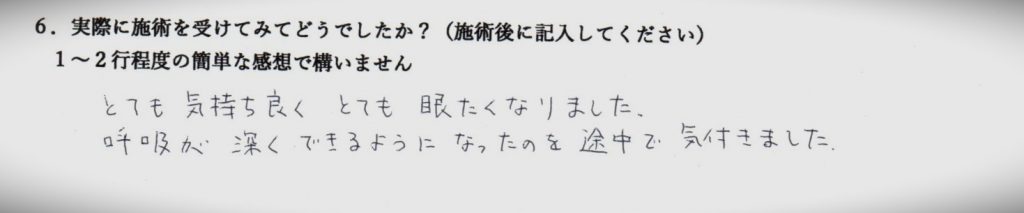 6．実際に施術を受けてみてどうでしたか？（施術後に記入してください）
1～2行程度の簡単な感想で構いません
とても 気持ち良く とても 眠たくなりました.
呼吸が 深く できるように なったのを 途中で 気付きました.